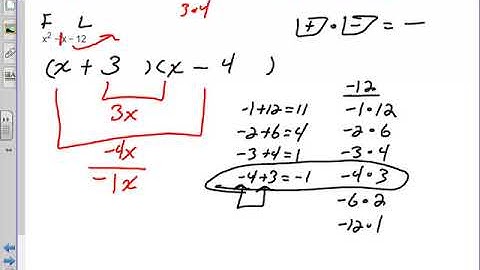 F L
3•4
x² - x - 12
[+] • [-] = -
(x + 3 )(x - 4 )
3x
-4x
-1x
-12
-1+12=11 -1•12
-2+6=4 -2•6
-3+4=1 -3•4
-4+3=-1 -4•3
-6•2
-12•1